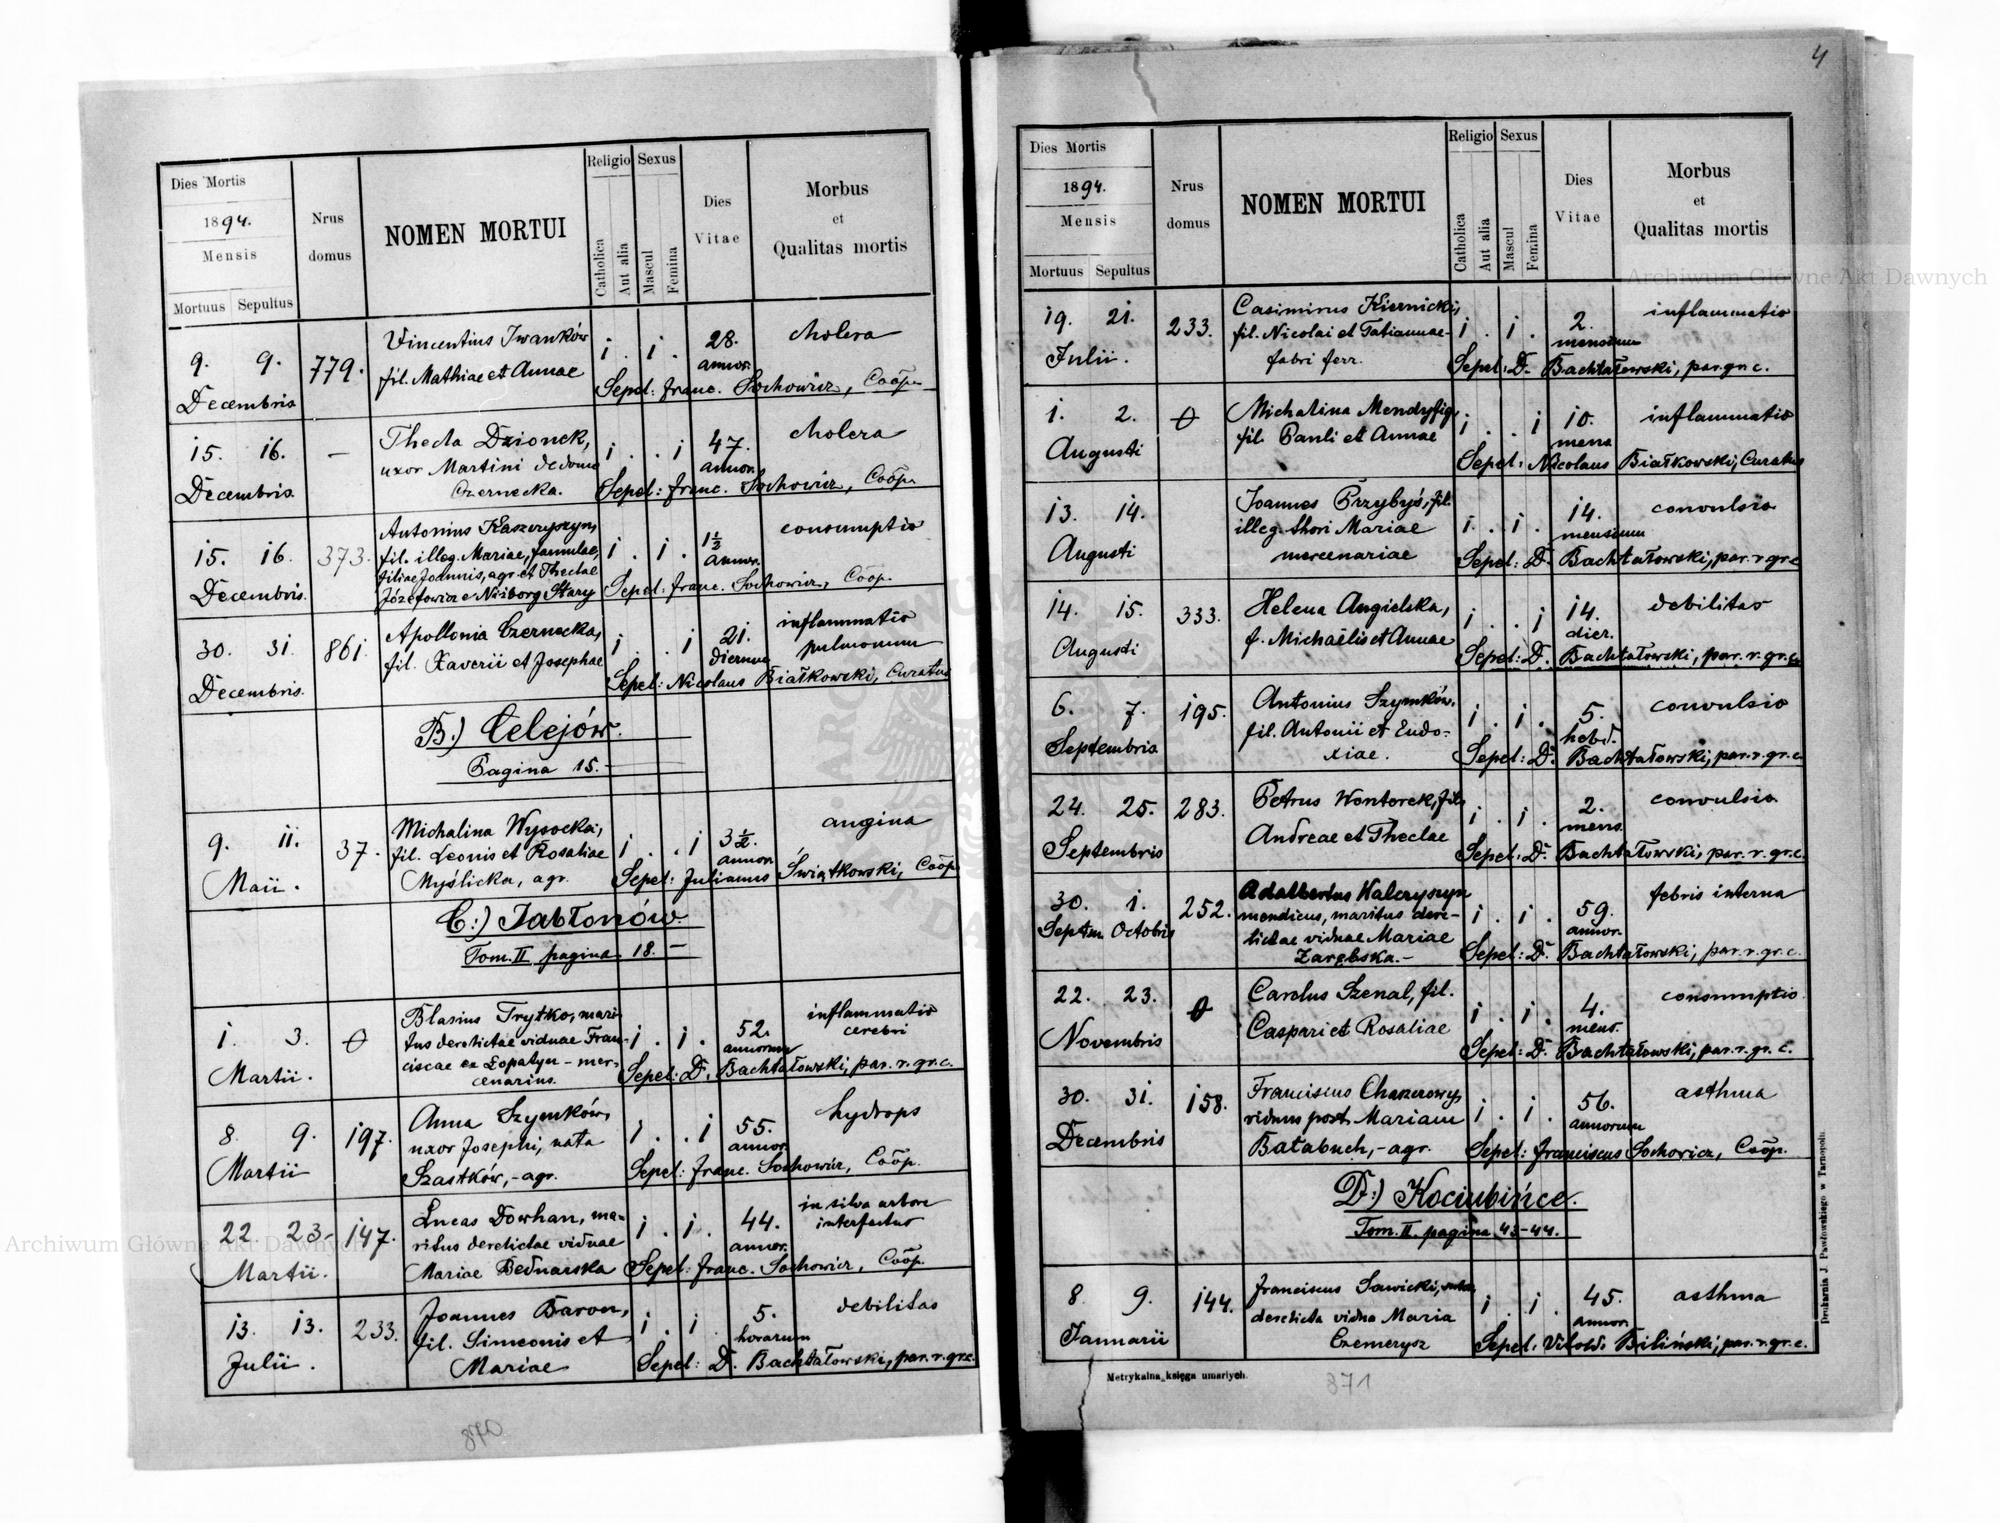 Dies Mortis
1894.
Mensis
Mortuus Sepultus
Nrus domus
NOMEN MORTUI
Religio
Catholica
Aut alia
Sexus
Mascul
Femina
Dies Vitae
Morbus et Qualitas mortis
9. 9. 779. Vincentius Iwanków i . i . 28. cholera
Decembris fil. Mathiae et Annae annor.
Sepel: Franc. Sochowicz, Coop.
15. 16. — Thecla Dzionek, i . . i 47. cholera
Decembris. uxor Martini de domo annor.
Czernecka. Sepel: Franc. Sochowicz, Coop.
15. 16. 373. Antonius Kaszczyszyn, i . i . 1½ consumptio
Decembris. fil. illeg. Mariae, famulae, annor.
filiae Joannis, agr. et Theclae
Józefowicz e Niżborg Stary Sepel: Franc. Sochowicz, Coop.
30. 31. 861. Apollonia Czernecka, i . . i 21. inflammatio
Decembris. fil. Xaverii et Josephae dierum pulmonum
Sepel: Nicolaus Białkowski, Curatus
B.) Celejów.
Pagina 15.—
9. 11. 37. Michalina Wysocka, i . . i 3½. angina
Maii. fil. Leonis et Rosaliae annor.
Myślicka, agr. Sepel: Julianus Świątkowski, Coop.
C.) Jabłonów.
Tom. II pagina 18.—
1. 3. 0 Blasius Trytko, mari- i . i . 52. inflammatio
Martii. tus derelictae viduae Fran- annorum cerebri
ciscae ex Łopatyn - mer-
cenarius. Sepel: D. Bachtałowski, par. r. gr. c.
8. 9. 197. Anna Szymków, i . . i 55. hydrops
Martii uxor Josephi, nata annor.
Szastków, - agr. Sepel: Franc. Sochowicz, Coop.
22. 23. 147. Lucas Dowhan, ma- i . i . 44. in silva arbore
Martii. ritus derelictae viduae annor. interfectus
Mariae Bednarska Sepel: Franc. Sochowicz, Coop.
13. 13. 233. Joannes Baron, i . i . 5. debilitas
Julii. fil. Simeonis et horarum
Mariae Sepel: D. Bachtałowski, par. r. gr. c.
870
4
Dies Mortis
1894.
Mensis
Mortuus Sepultus
Nrus domus
NOMEN MORTUI
Religio
Catholica
Aut alia
Sexus
Mascul
Femina
Dies Vitae
Morbus et Qualitas mortis
19. 21. 233. Casimirus Kiernicki, i . i . 2. inflammatio
Julii. fil. Nicolai et Tatiannae - mensium
fabri ferr. Sepel: D. Bachtałowski, par. gr. c.
1. 2. 0 Michalina i . . i 10. inflammatio
Augusti fil. Pauli et Annae mens.
Sepel: Nicolaus Białkowski, Curatus
13. 14. Joannes Przybyś, fil. i . i . 14. convulsio
Augusti illeg. thori Mariae mensium
mercenariae Sepel: D. Bachtałowski, par. r. gr. c.
14. 15. 333. Helena Angielska, i . . i 14. debilitas
Augusti f. Michaëlis et Annae dier.
Sepel: D. Bachtałowski, par. r. gr. c.
6. 7. 195. Antonius Szymków, i . i . 5. convulsio
Septembris fil. Antonii et Eudo- hebd.
xiae. Sepel: D. Bachtałowski, par. r. gr. c.
24. 25. 283. Petrus Wontorek, fil. i . i . 2. convulsio
Septembris Andreae et Theclae mens.
Sepel: D. Bachtałowski, par. r. gr. c.
30. 1. 252. Adalbertus Walczyszyn i . i . 59. febris interna
Septem. Octobris mendicus, maritus dere- annor.
lictae viduae Mariae
Zarębska.— Sepel: D. Bachtałowski, par. r. gr. c.
22. 23. 0 Carolus Szenal, fil. i . i . 4. consumptio
Novembris Caspari et Rosaliae mens.
Sepel: D. Bachtałowski, par. r. gr. c.
30. 31. 158. Franciscus i . i . 56. asthma
Decembris viduus post. Mariam annorum
Bałabuch, - agr. Sepel: Franciscus Sochowicz, Coop.
D.) Kociubińce.
Tom. II. pagina 43-44.
8. 9. 144. Franciscus Sawicki, i . i . 45. asthma
Januarii derelicta vidua Maria annor.
Czemerysz Sepel. Vitold. Biliński, par. r. gr. c.
Metrykalna księga umarłych.
871
Drukarnia J. Pawłowskiego w Tarnopolu.
Archiwum Główne Akt Dawnych
Archiwum Główne Akt Dawnych